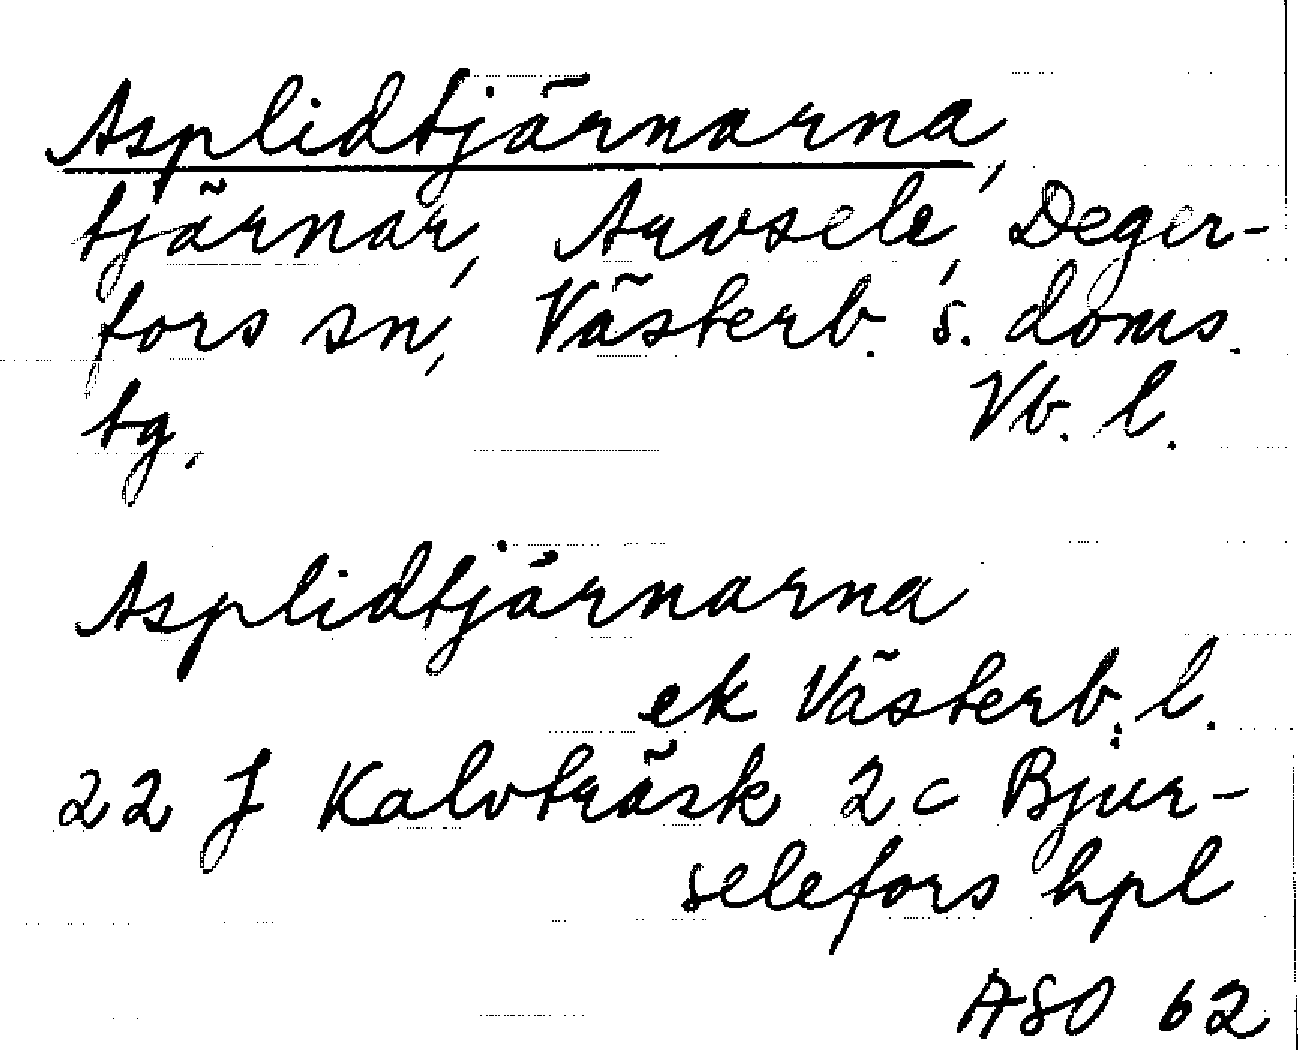 Asplidtjärnarna,
tjärnar, Arvsele, Deger-
fors sn, Västerb. s. doms.
tg. Vb. l.
Asplidtjärnarna
ek Västerb. l.
22 J Kalvträsk 2c Bjur-
selefors hpl
ASO 62